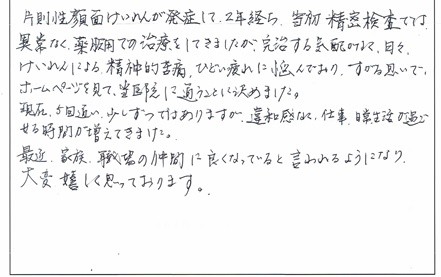 片側性顔面けいれんが発症して、2年経ち、当初 精密検査では
異常なく、薬服用での治療をしてきましたが、完治する気配がなく、日々、
けいれんによる、精神的苦痛、ひどい疲れに悩んでおり、すがる思いで、
ホームページを見て、当医院に通うことに決めました。
現在、5回通い、少しずつではありますが、違和感なく、仕事、日常生活が過ご
せる時間が増えてきました。
最近、家族、職場の仲間に良くなっていると言われるようになり、
大変嬉しく思っております。